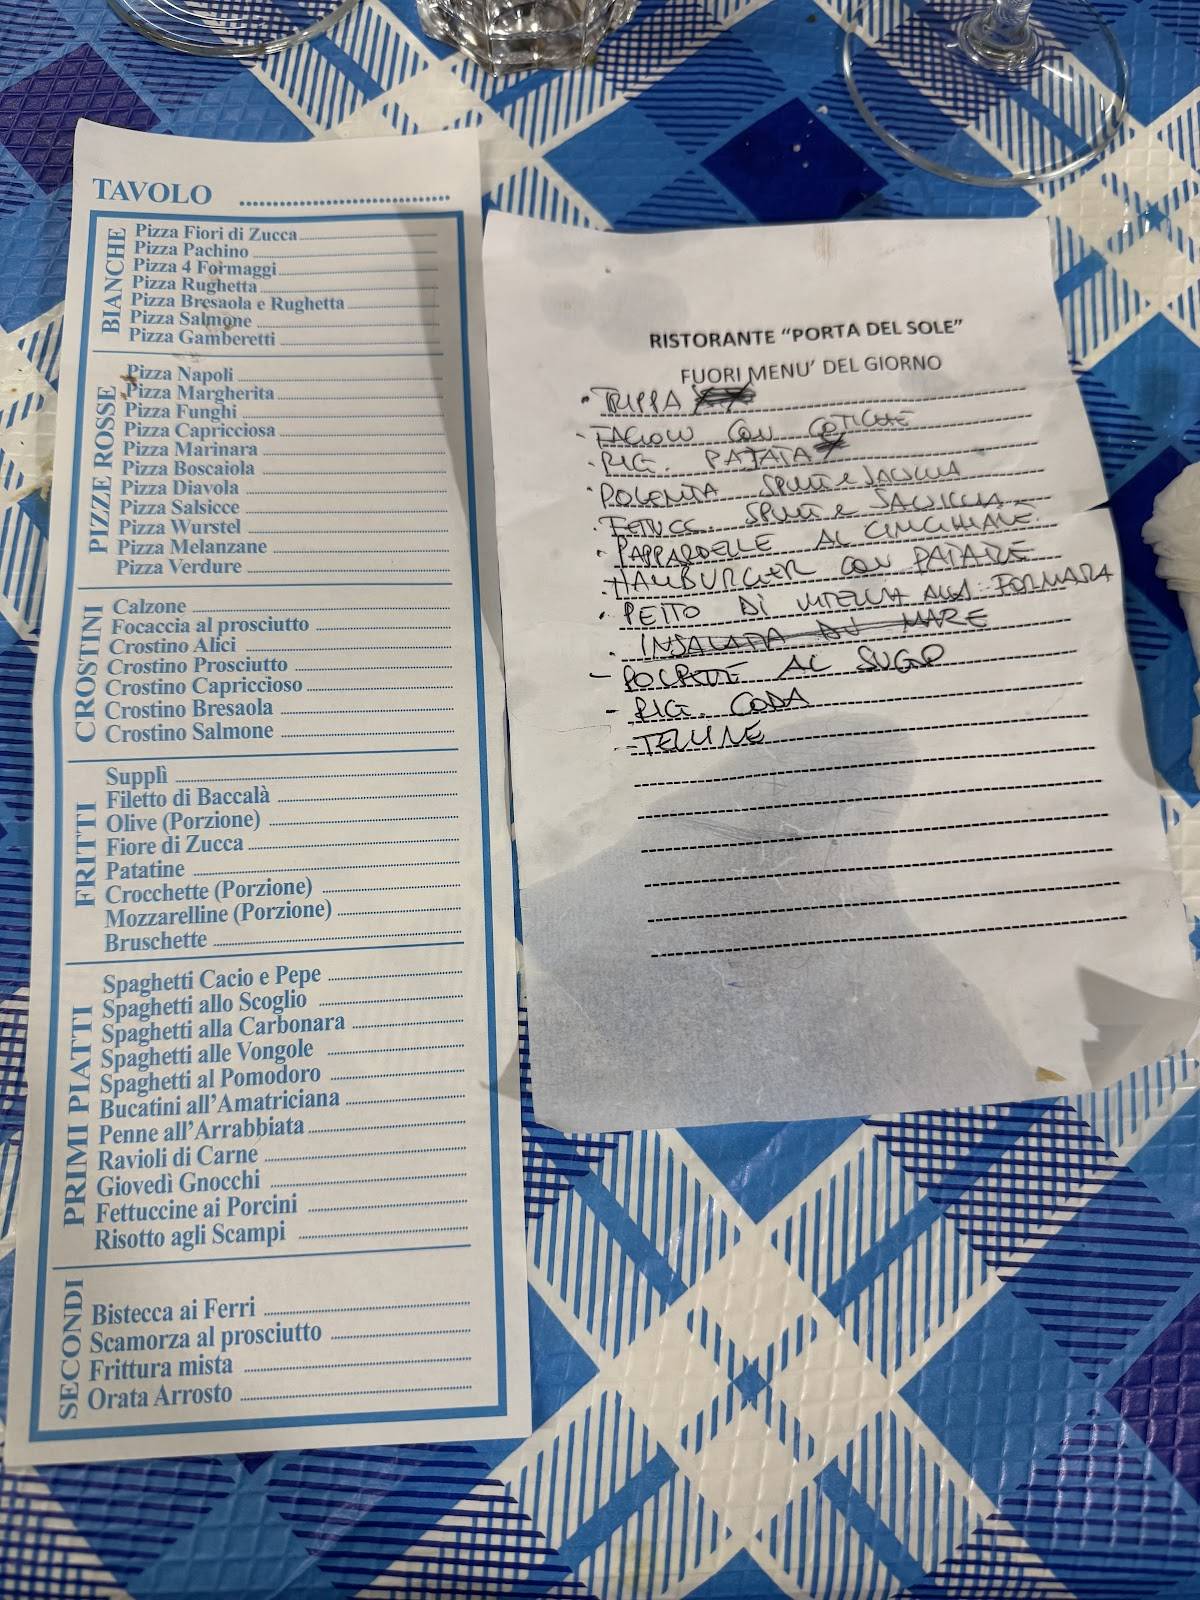 TAVOLO
BIANCHE
Pizza Fiori di Zucca
Pizza Pachino
Pizza 4 Formaggi
Pizza Rughetta
Pizza Bresaola e Rughetta
Pizza Salmone
Pizza Gamberetti
PIZZE ROSSE
Pizza Napoli
Pizza Margherita
Pizza Funghi
Pizza Capricciosa
Pizza Marinara
Pizza Boscaiola
Pizza Diavola
Pizza Salsicce
Pizza Wurstel
Pizza Melanzane
Pizza Verdure
CROSTINI
Calzone
Focaccia al prosciutto
Crostino Alici
Crostino Prosciutto
Crostino Capriccioso
Crostino Bresaola
Crostino Salmone
FRITTI
Supplì
Filetto di Baccalà
Olive (Porzione)
Fiore di Zucca
Patatine
Crocchette (Porzione)
Mozzarelline (Porzione)
Bruschette
PRIMI PIATTI
Spaghetti Cacio e Pepe
Spaghetti allo Scoglio
Spaghetti alla Carbonara
Spaghetti alle Vongole
Spaghetti al Pomodoro
Bucatini all'Amatriciana
Penne all'Arrabbiata
Ravioli di Carne
Giovedì Gnocchi
Fettuccine ai Porcini
Risotto agli Scampi
SECONDI
Bistecca ai Ferri
Scamorza al prosciutto
Frittura mista
Orata Arrosto
RISTORANTE "PORTA DEL SOLE"
FUORI MENU' DEL GIORNO
• TRIPPA
- FAGIOLI CON COTICHE
• RIG. PAJATA
• POLENTA SPUNT e SALSICCIA
• FETUCC. SPUNT e SALSICCIA
• PAPPARDELLE AL CINGHIALE
• HAMBURGER CON PATATE
• PETTO DI VITELLA ALLA FORNARA
• INSALATA DI MARE
- POLPETTE AL SUGO
- RIG. CODA
- TELLINE